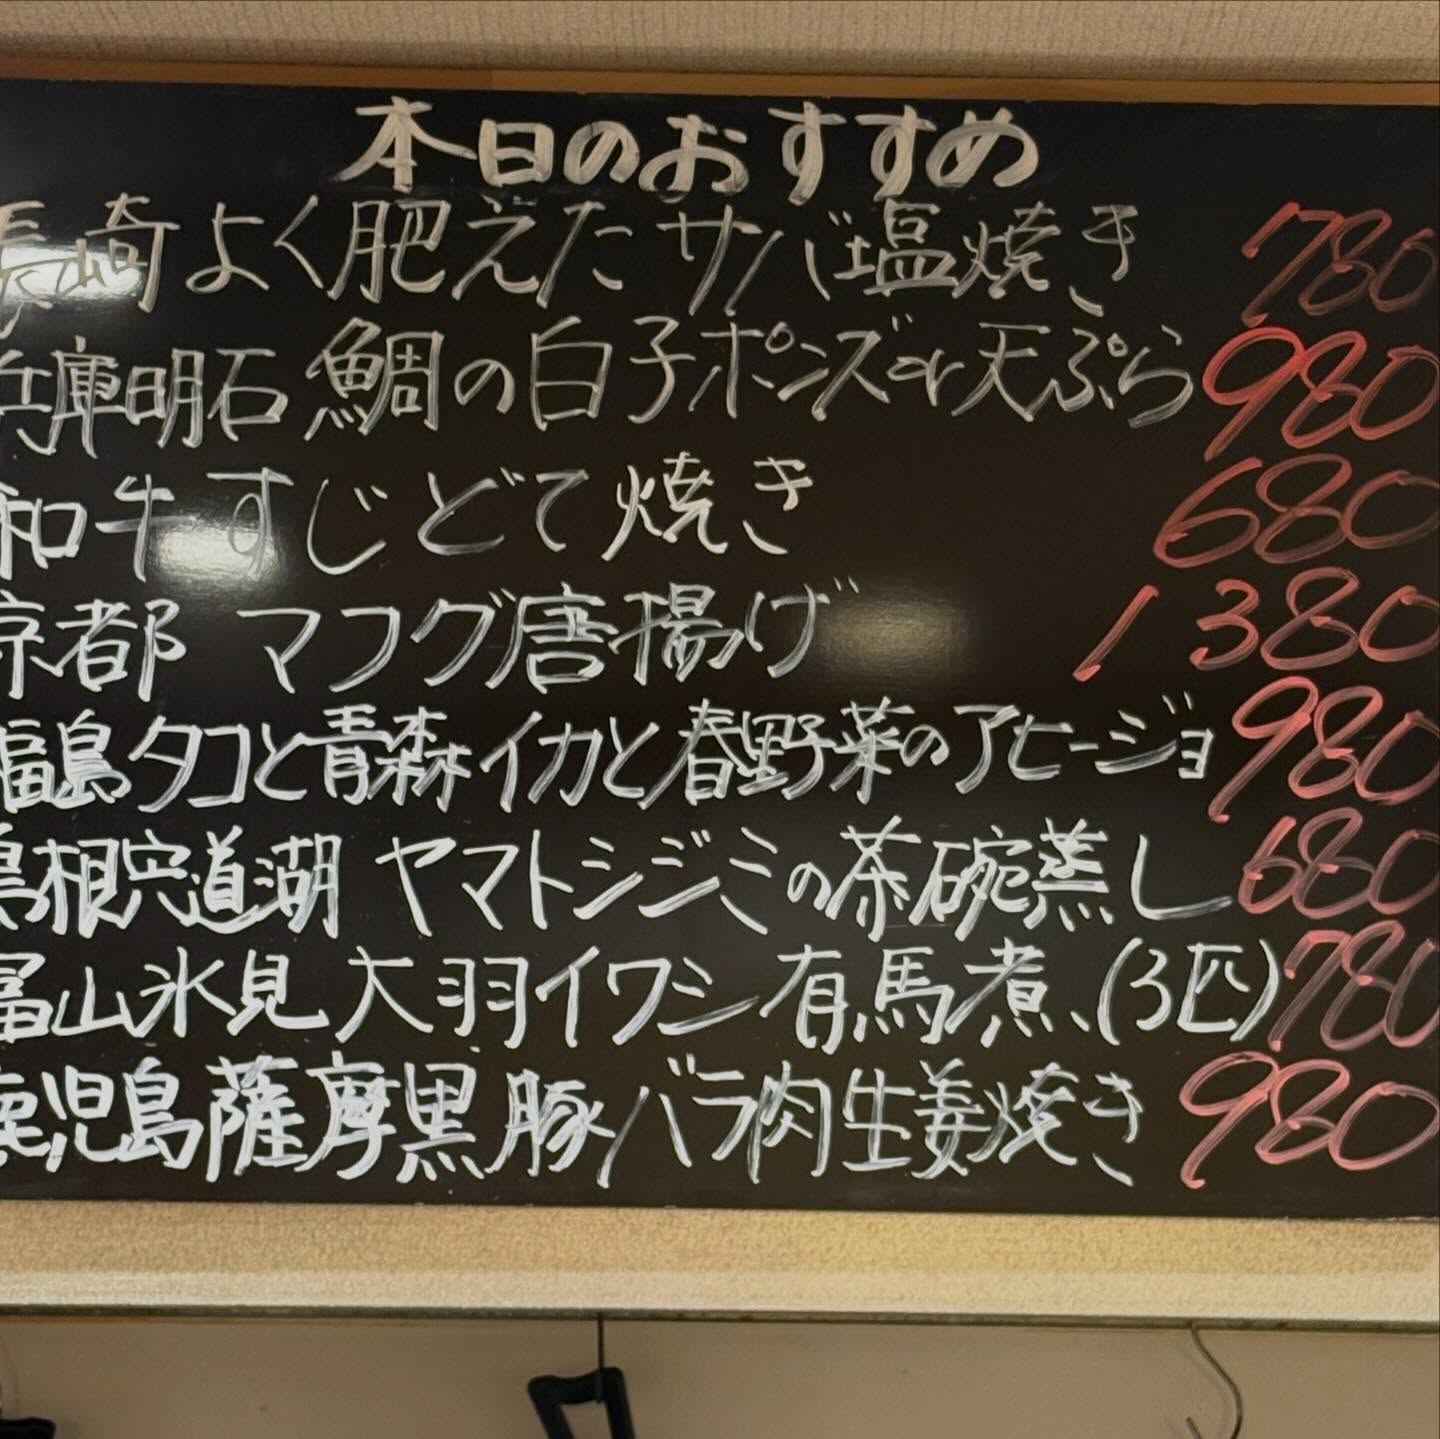 本日のおすすめ
長崎よく肥えたサバ塩焼き 780
兵庫明石 鯛の白子ポンズor天ぷら 980
和牛すじどて焼き 680
京都 マフグ唐揚げ 1380
福島タコと青森イカと春野菜のアヒージョ 980
島根宍道湖 ヤマトシジミの茶碗蒸し 680
富山氷見 大羽イワシ有馬煮(3匹) 780
鹿児島薩摩黒豚バラ肉生姜焼き 980